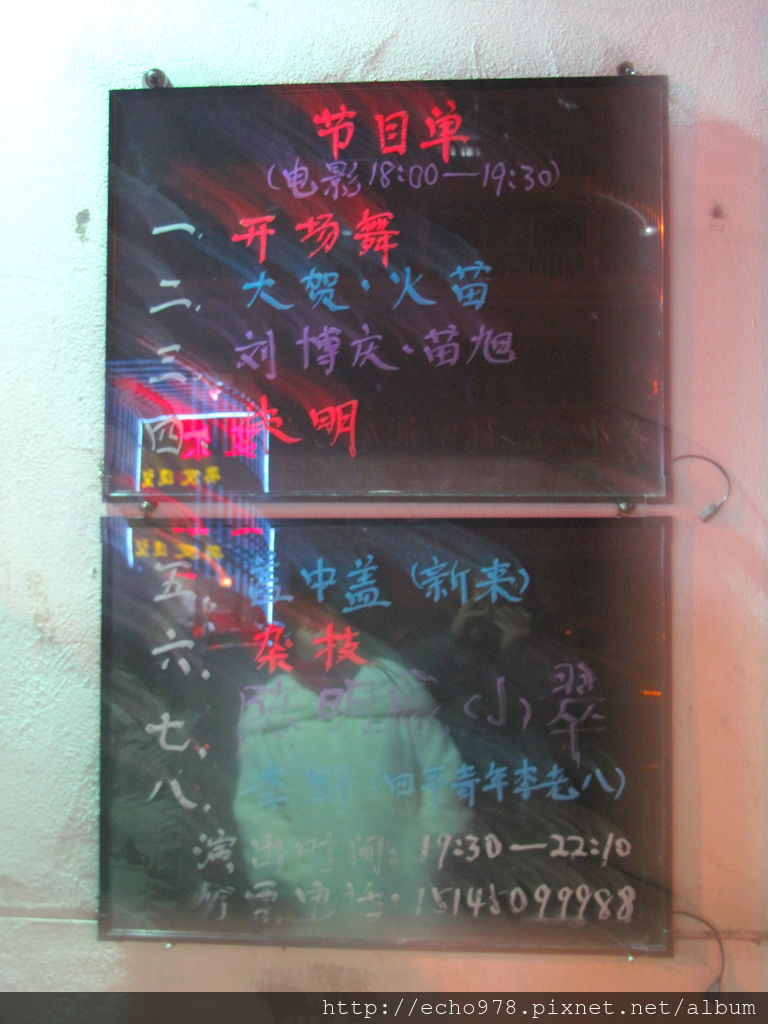 节目单
(电影18:00—19:30)
一. 开场舞
二. 大贺·火苗
三. 刘博庆·苗旭
四. 明
五. 盖中盖(新来)
六. 杂技
七. (小)翠
八. 李野(四平青年李老八)
演出时间:19:30—22:10
电话:15145099988
http://echo978.pixnet.net/album